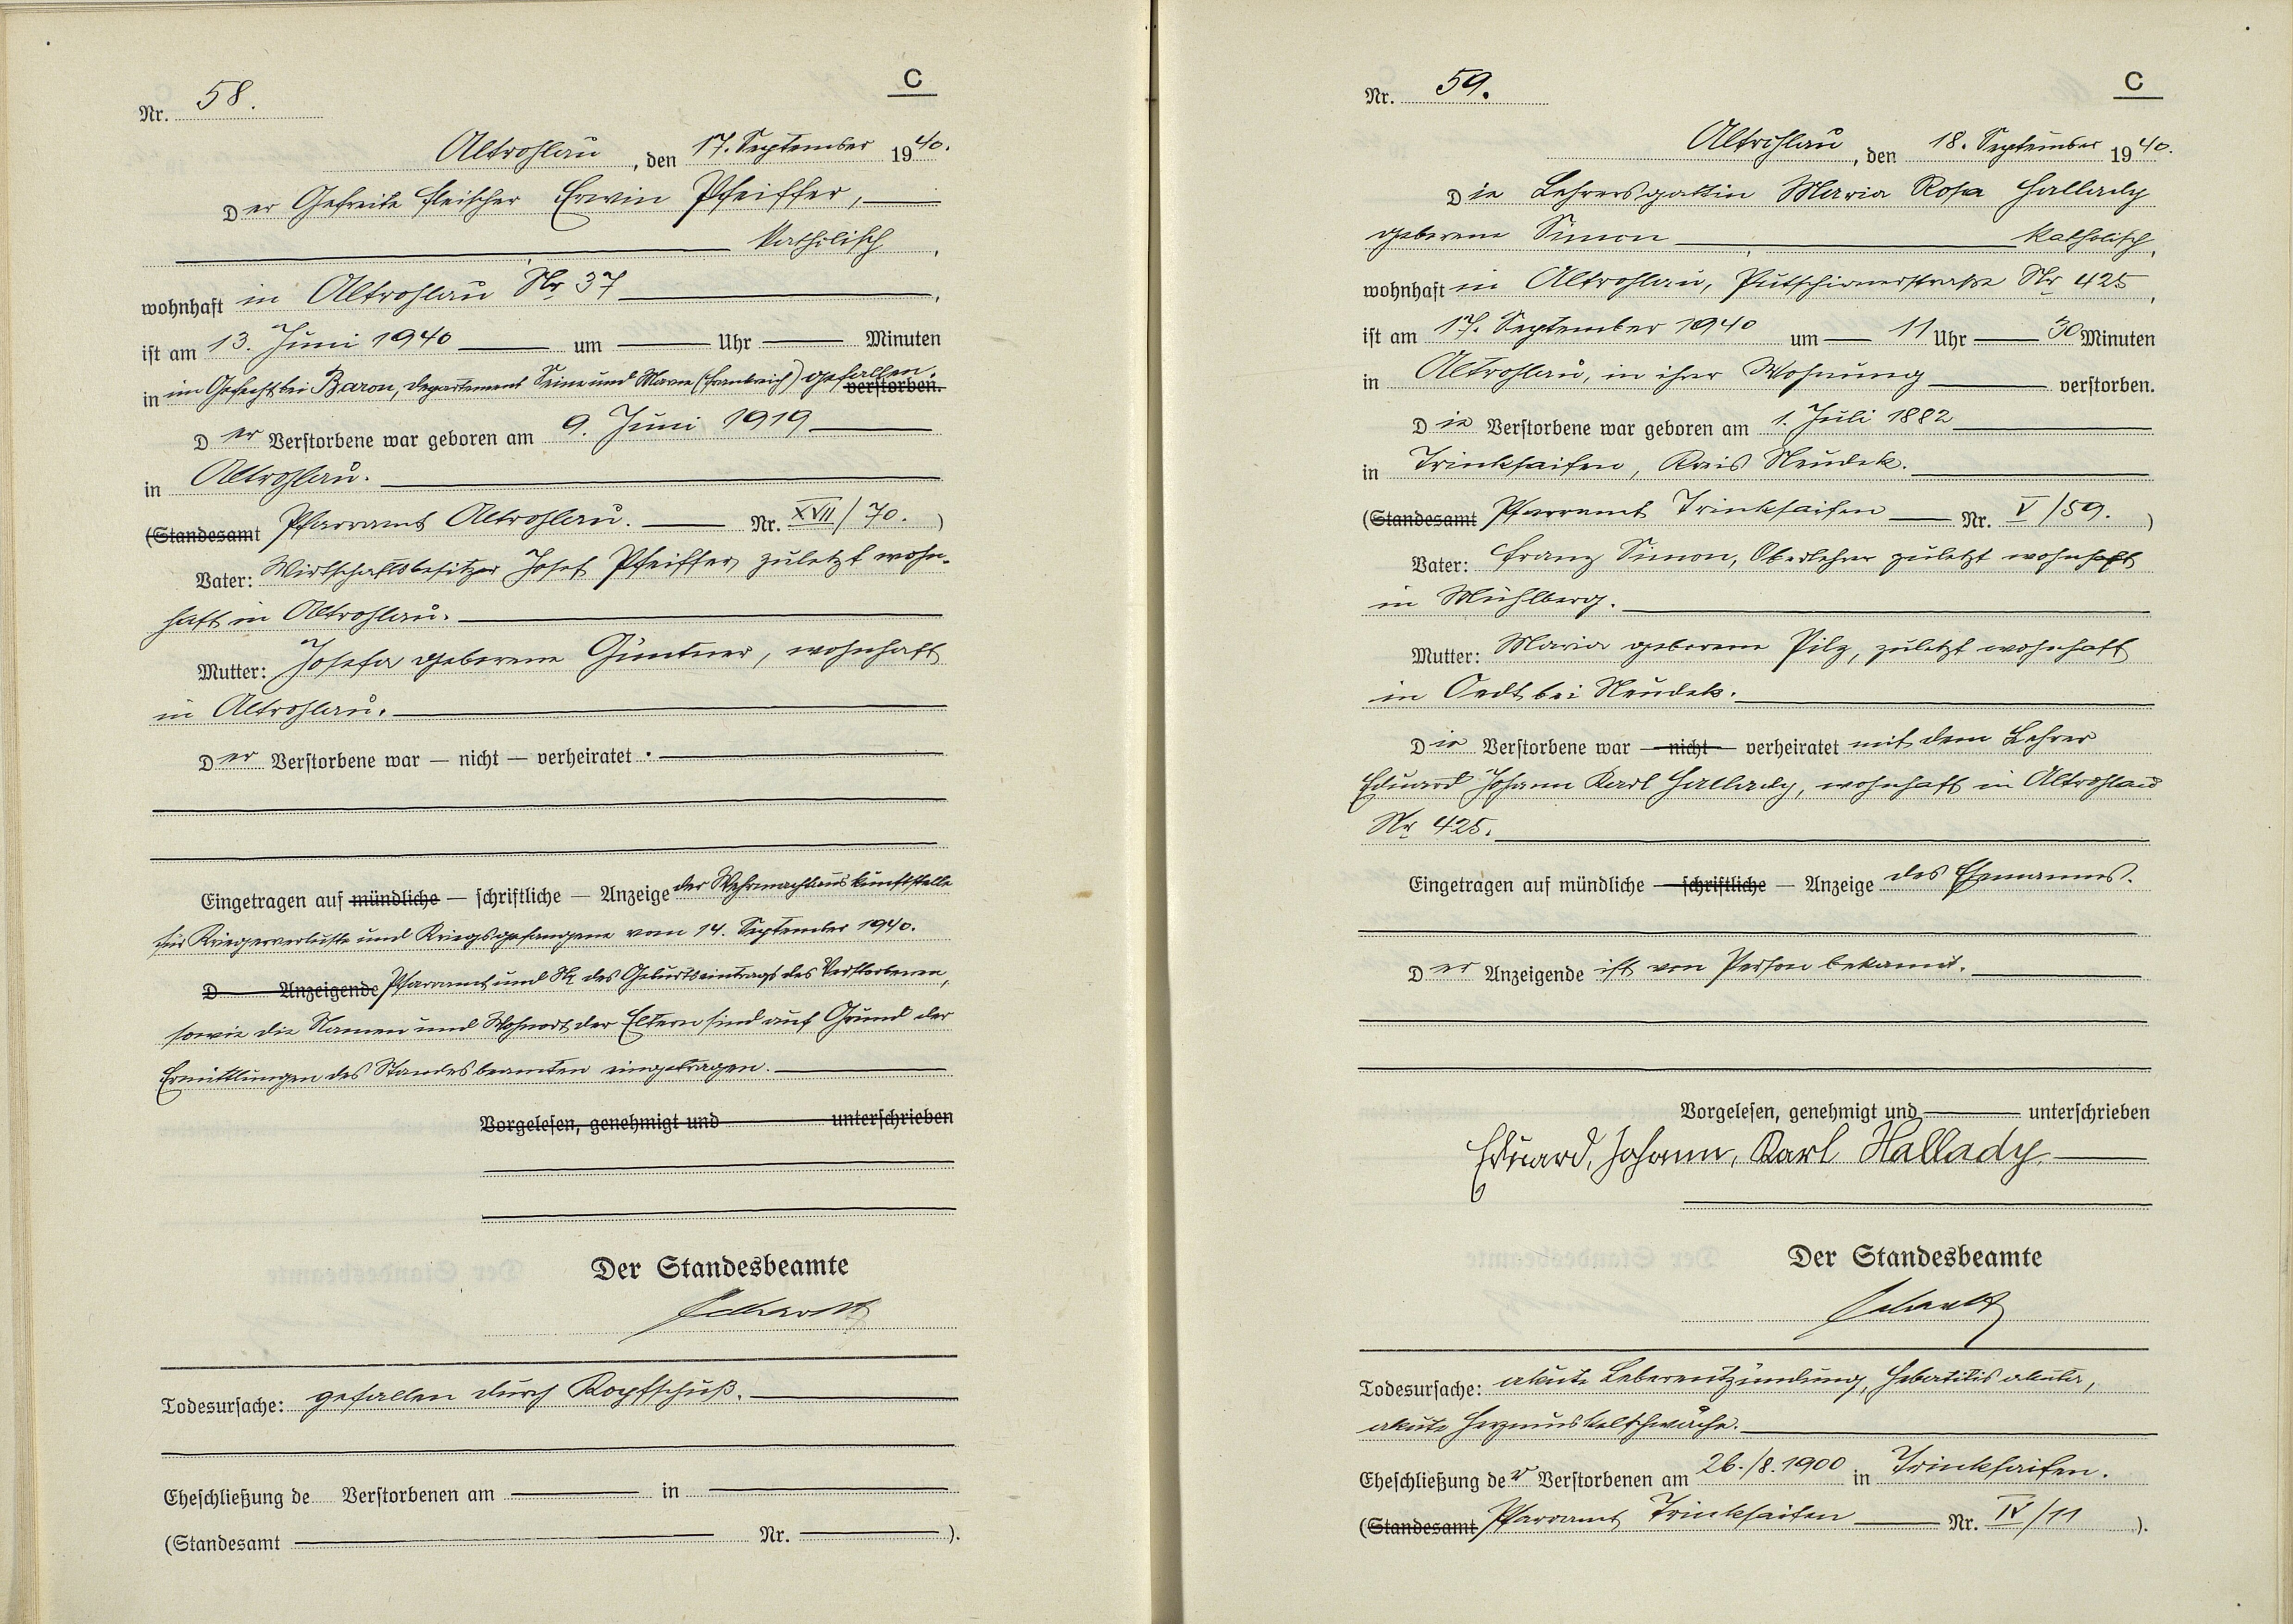 C
Nr. 58.
Altrohlau, den 17. September 1940.
Der Gefreite Fleischer Erwin Pfeiffer,
katholisch,
wohnhaft in Altrohlau Nr 37,
ist am 13. Juni 1940 um Uhr Minuten
in im Gefecht bei Baron, Departement Seine und Marne (Frankreich) gefallen. verstorben.
Der Verstorbene war geboren am 9. Juni 1919
in Altrohlau.
(Standesamt Pfarramt Altrohlau. Nr. XVII/70.)
Vater: Wirtschaftsbesitzer Josef Pfeiffer, zuletzt wohn-
haft in Altrohlau.
Mutter: Josefa geborene Güntner, wohnhaft
in Altrohlau.
Der Verstorbene war — nicht — verheiratet.
Eingetragen auf mündliche — schriftliche — Anzeige der Wehrmachtauskunftstelle
für Kriegerverluste und Kriegsgefangene vom 14. September 1940.
D Anzeigende Pfarramt und Nr des Geburtseintrags des Verstorbenen,
sowie die Namen und Wohnort der Eltern sind auf Grund der
Ermittlungen des Standesbeamten eingetragen.
Vorgelesen, genehmigt und unterschrieben
Der Standesbeamte
Todesursache: gefallen durch Kopfschuß.
Eheschließung de Verstorbenen am in
(Standesamt Nr. ).
C
Nr. 59.
Altrohlau, den 18. September 1940.
Die Lehrersgattin Maria Rosa Hallady
geborene Simon katholisch,
wohnhaft in Altrohlau, Putschirnerstraße Nr 425,
ist am 17. September 1940 um 11 Uhr 30 Minuten
in Altrohlau, in ihrer Wohnung verstorben.
Die Verstorbene war geboren am 1. Juli 1882
in Trinksaifen, Kreis Neudek.
(Standesamt Pfarramt Trinksaifen Nr. V/59.)
Vater: Franz Simon, Oberlehrer zuletzt wohnhaft
in Mühlberg.
Mutter: Maria geborene Pilz, zuletzt wohnhaft
in Oedt bei Neudek.
Die Verstorbene war — nicht — verheiratet mit dem Lehrer
Eduard Johann Karl Hallady, wohnhaft in Altrohlau
Nr 425.
Eingetragen auf mündliche — schriftliche — Anzeige des Ehemannes.
Der Anzeigende ist von Person bekannt.
Vorgelesen, genehmigt und unterschrieben
Eduard, Johann, Karl Hallady
Der Standesbeamte
Todesursache: akute Leberentzündung, Hebatitis akuta,
akute Herzmuskelschwäche.
Eheschließung der Verstorbenen am 26./8.1900 in Trinksaifen.
(Standesamt Pfarramt Trinksaifen Nr. IV/11).